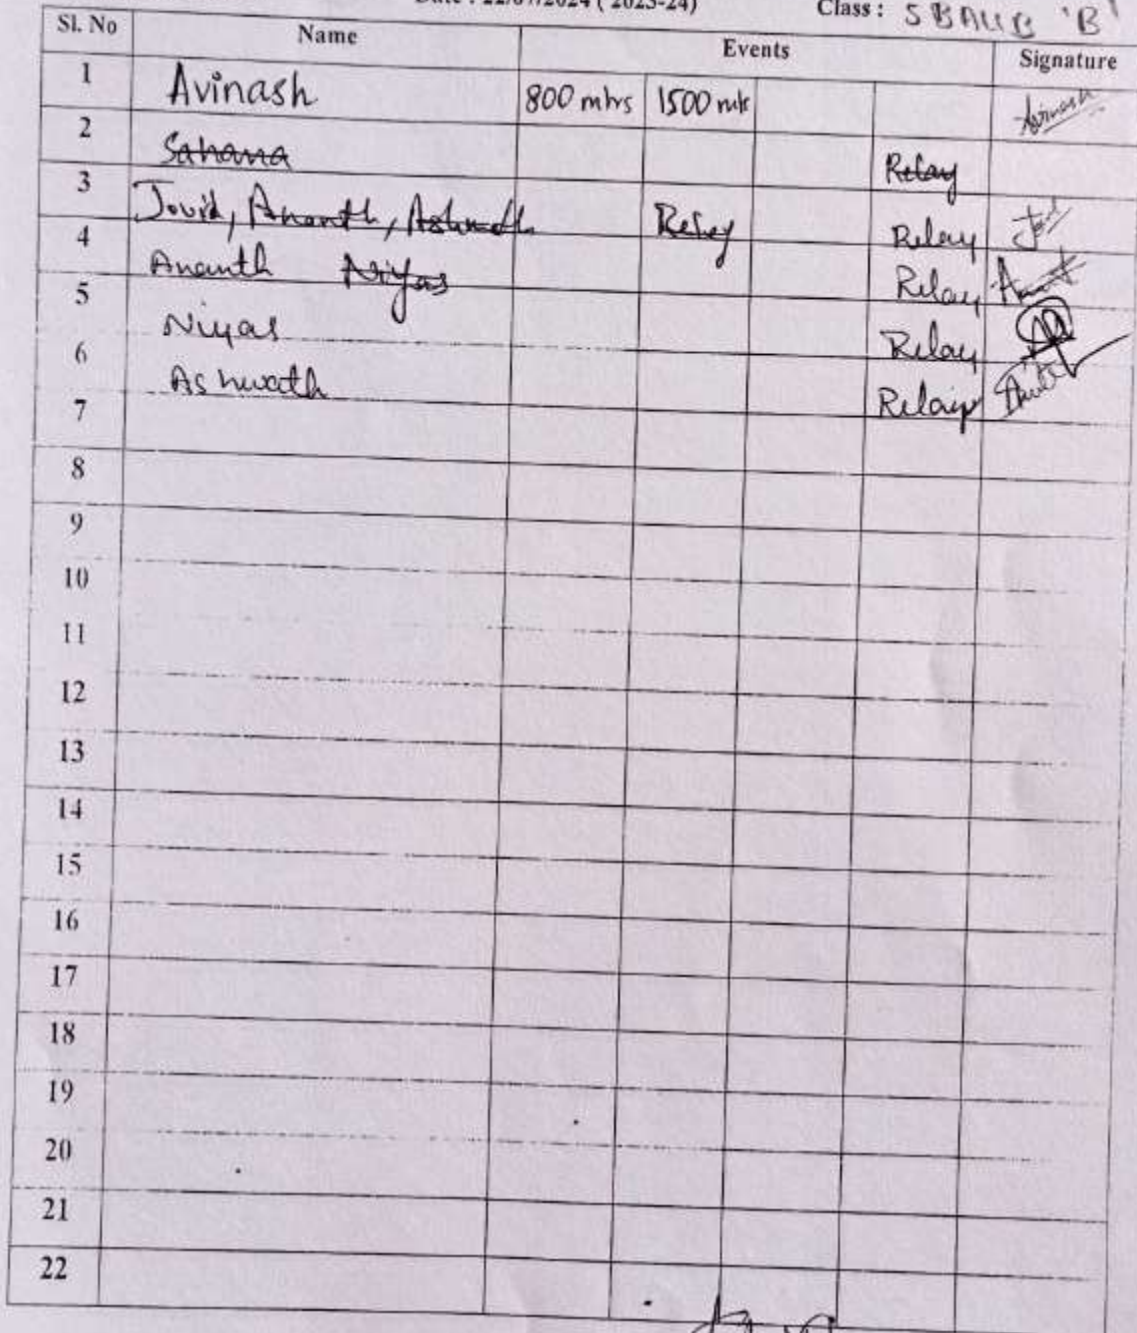 Date : 22/07/2024 ( 2023-24) Class : 5 BAUB 'B'
Sl. No Name Events Signature
1 Avinash 800 mtrs 1500 mtr Avinash
2 Sahana Relay
3 Jovid, Ananth, Ashwath Relay Relay
4 Ananth Niyas Relay
5 Niyas Relay
6 Ashwath Relay
7
8
9
10
11
12
13
14
15
16
17
18
19
20
21
22